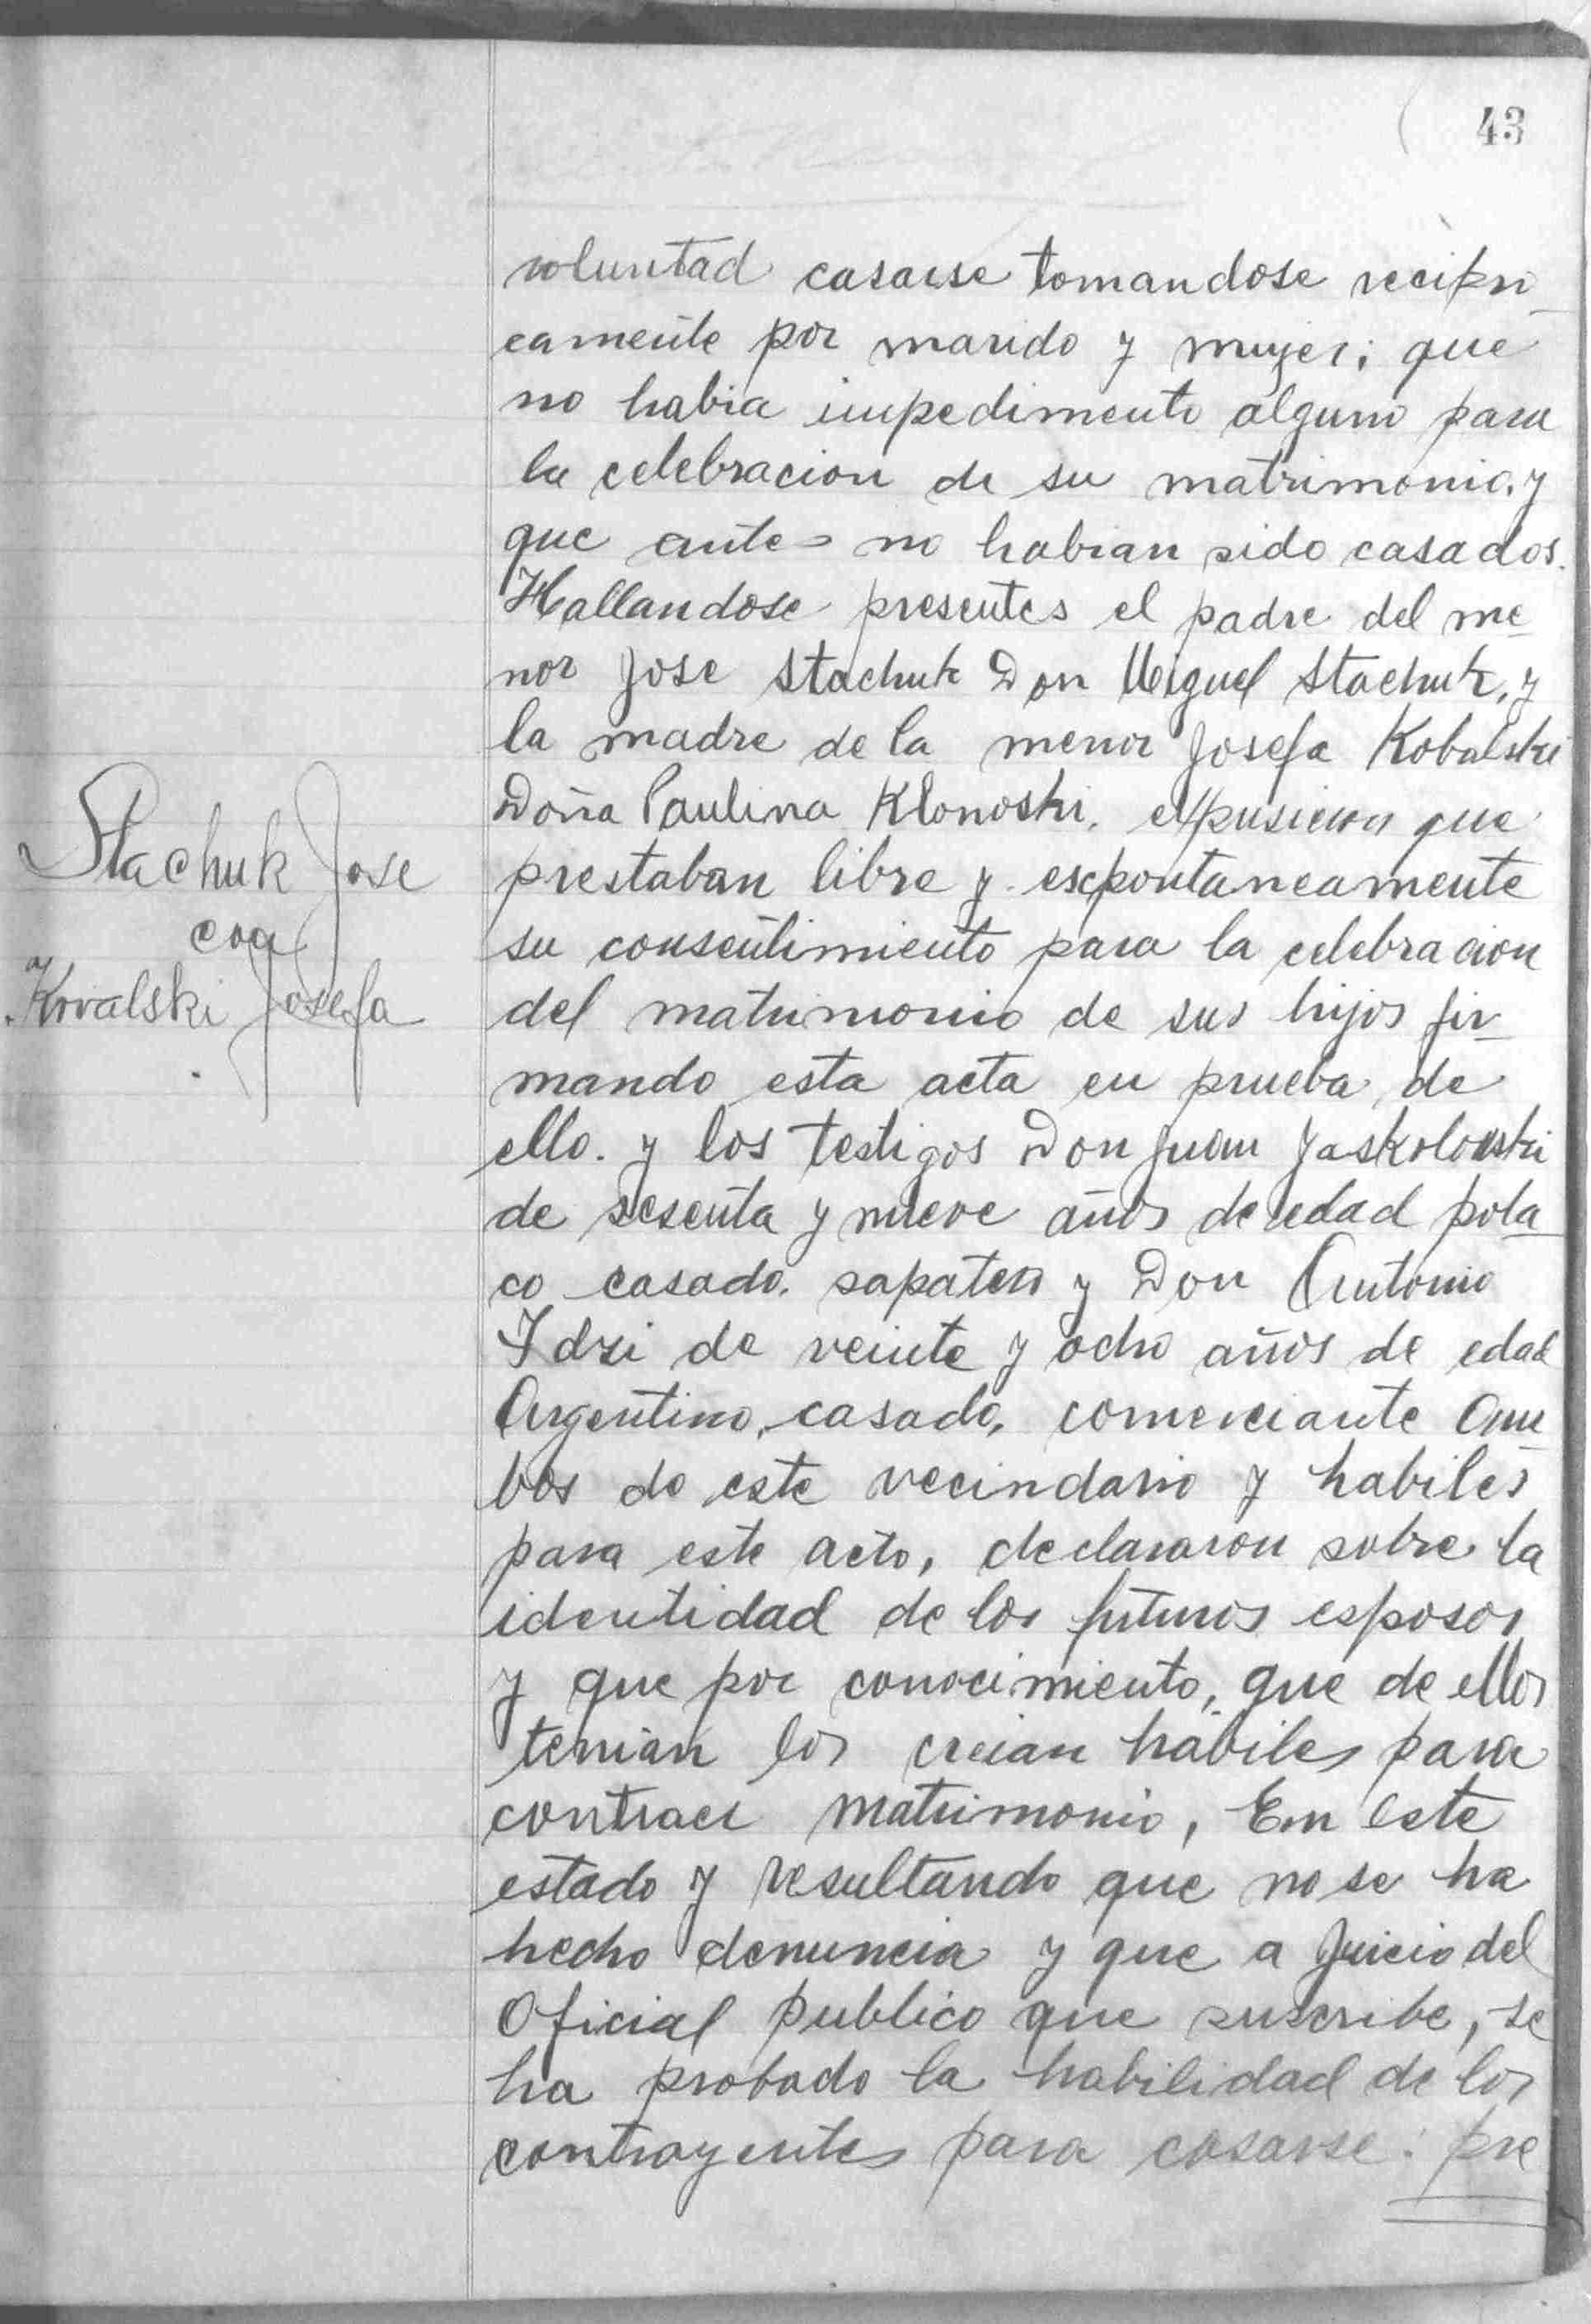 43
voluntad casarse tomandose recipro
camente por marido y mujer; que
no habia impedimento alguno para
la celebracion de su matrimonio, y
que antes no habian sido casados.
Hallandose presentes el padre del me
nor Jose Stachuk Don Miguel Stachuk, y
la madre de la menor Josefa Kobalski
Doña Paulina Klonoski, expusieron que
prestaban libre y expontaneamente
su consentimiento para la celebracion
del matrimonio de sus hijos fir
mando esta acta en prueba de
ello. y los testigos Don Juan Jaskolowski
de sesenta y nueve años de edad pola
co casado, sapatero y Don Antonio
Idzi de veinte y ocho años de edad
Argentino, casado, comerciante Am
bos de este vecindario y habiles
para este acto, declararon sobre la
identidad de los futuros esposos
y que por conocimiento, que de ellos
tenian los creian habiles para
contraer matrimonio, En este
estado y resultando que no se ha
hecho denuncia y que a Juicio del
Oficial publico que suscribe, se
ha probado la habilidad de los
contrayentes para casarse: pre
Stachuk Jose
con
Kovalski Josefa